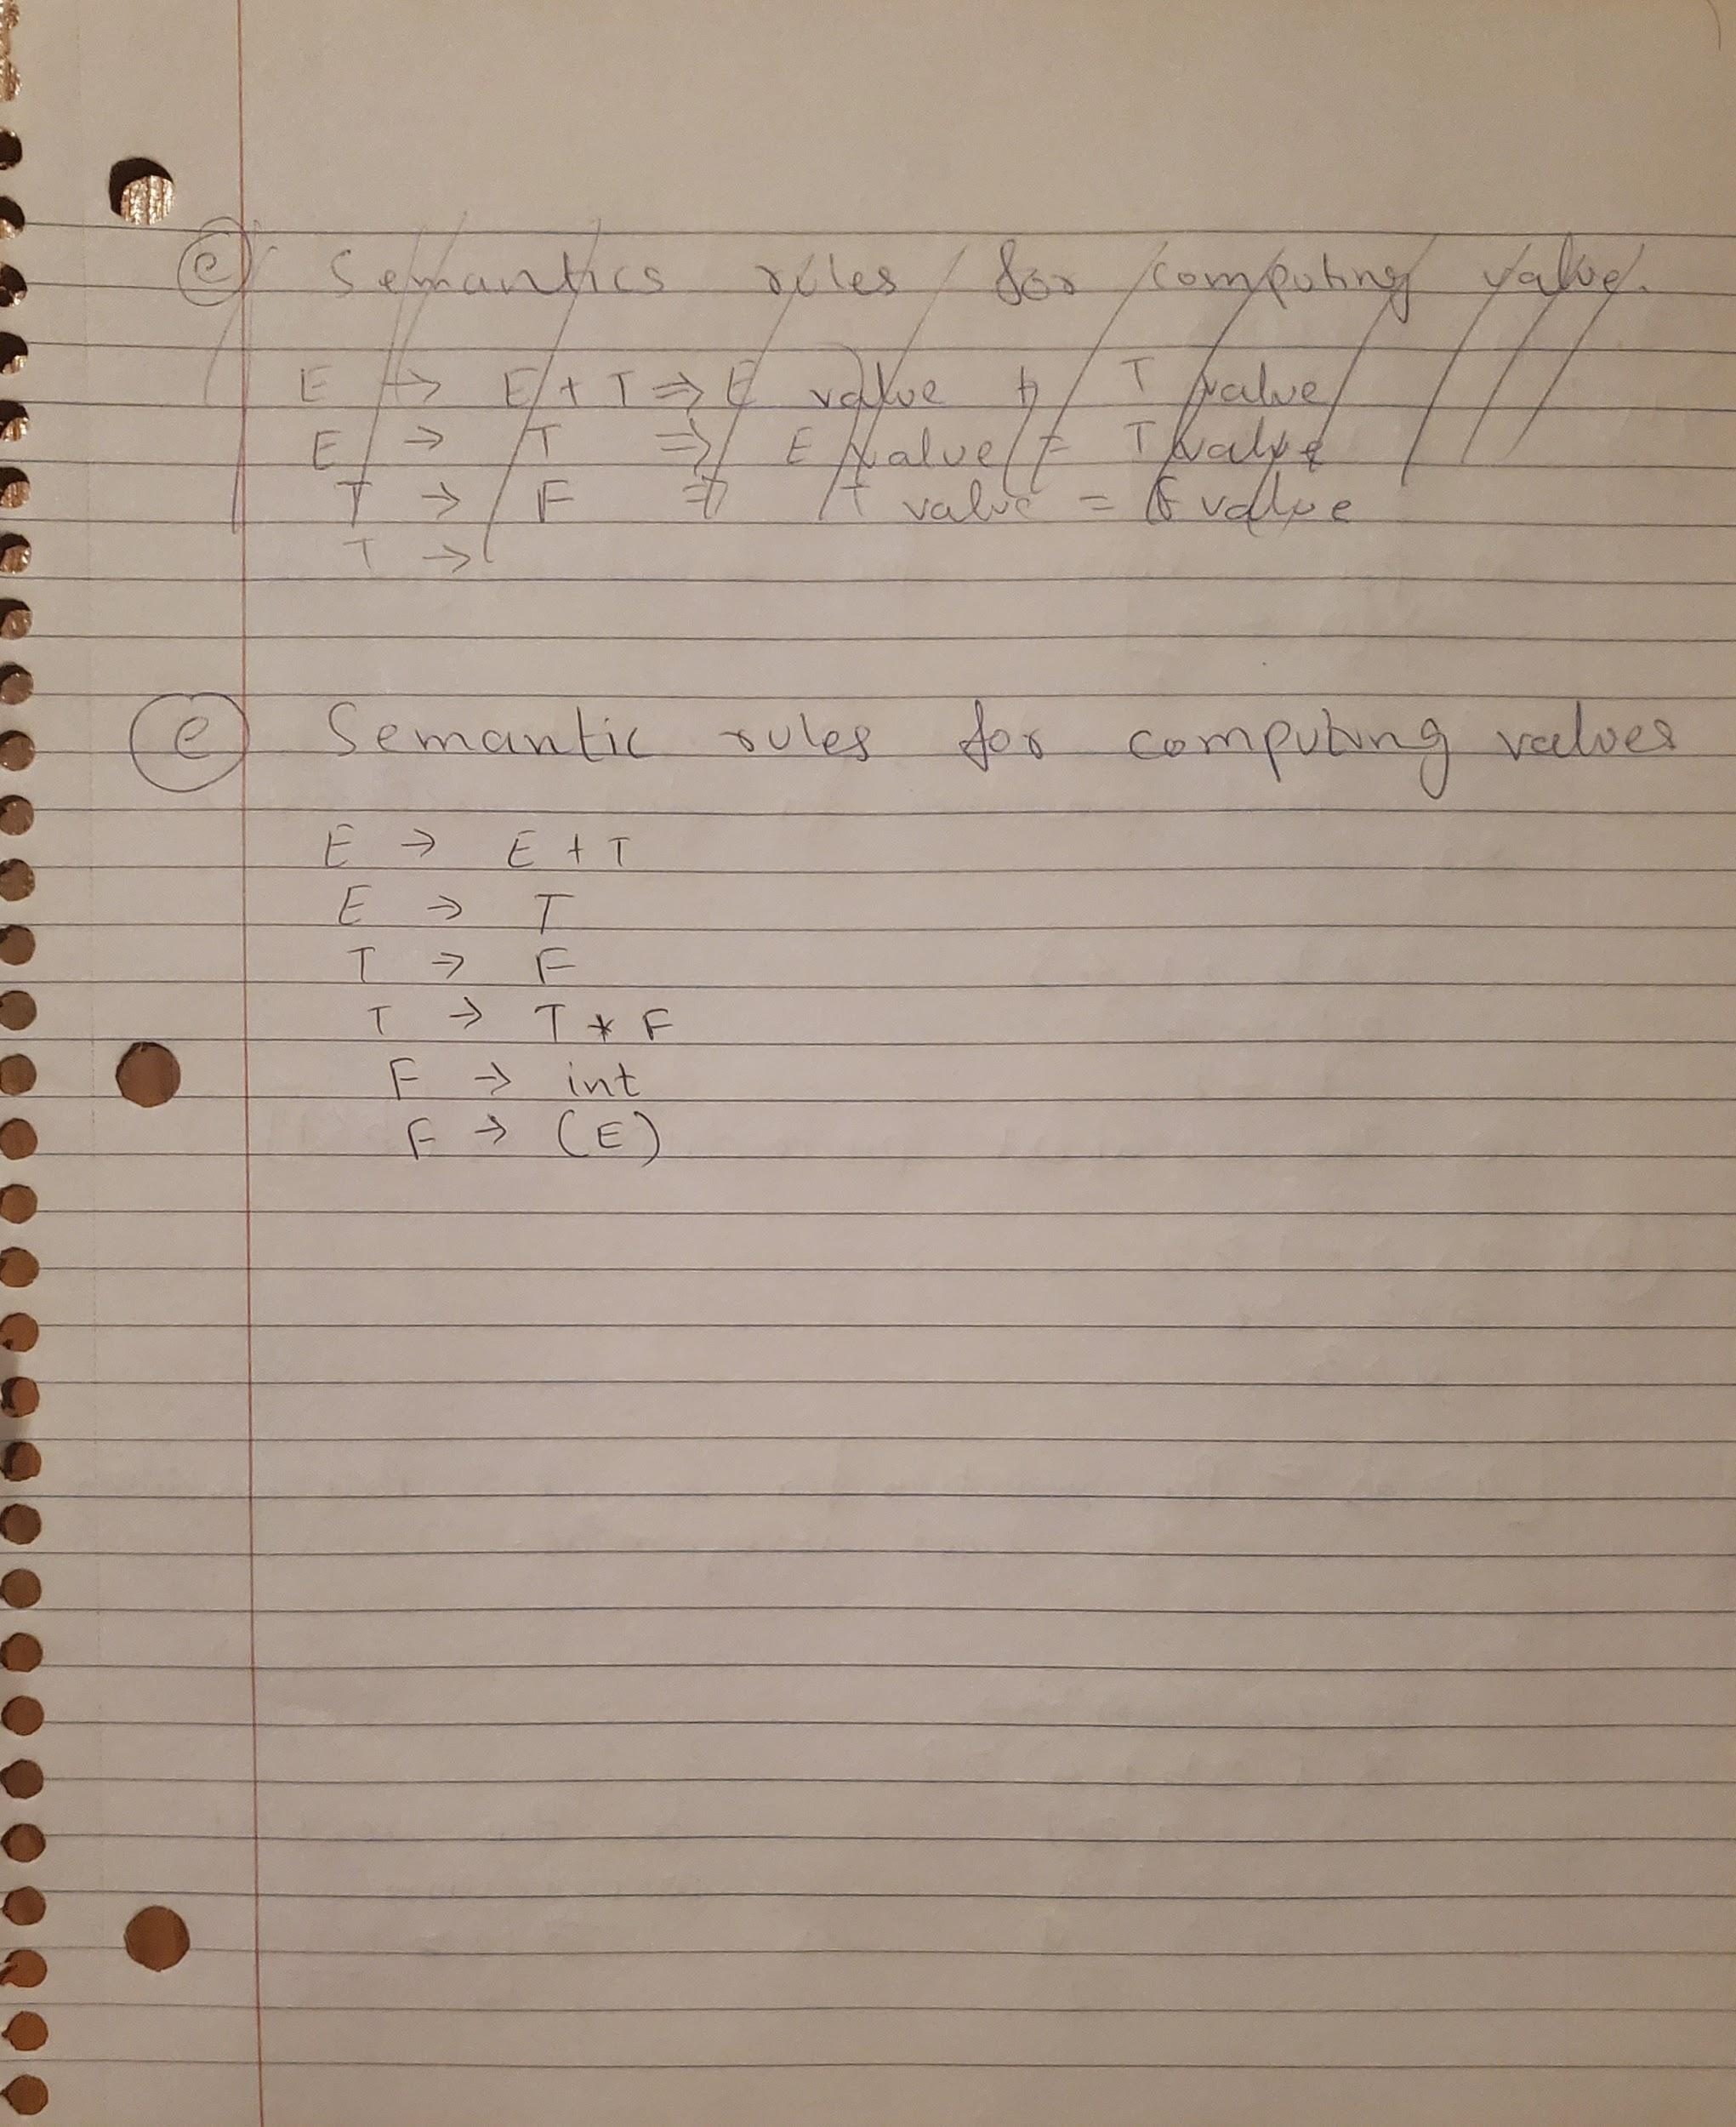 e Semantics rules for computing value.
E → E + T ⇒ E value + T value
E → T ⇒ E value = T value
T → F ⇒ T value = F value
T →
e Semantic rules for computing values
E → E + T
E → T
T → F
T → T * F
F → int
F → (E)